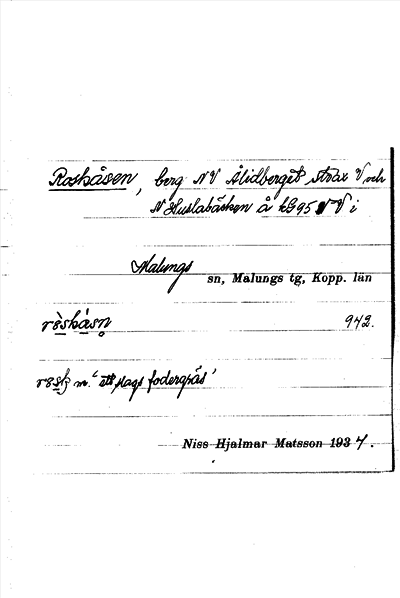 Roskåsen, berg NV Ålidberget strax V och
N Huslabäcken å kB 95 NV i
Malungs
sn, Malungs tg, Kopp. län
942.
m. "ett slags fodergräs"
Niss Hjalmar Matsson 1934.